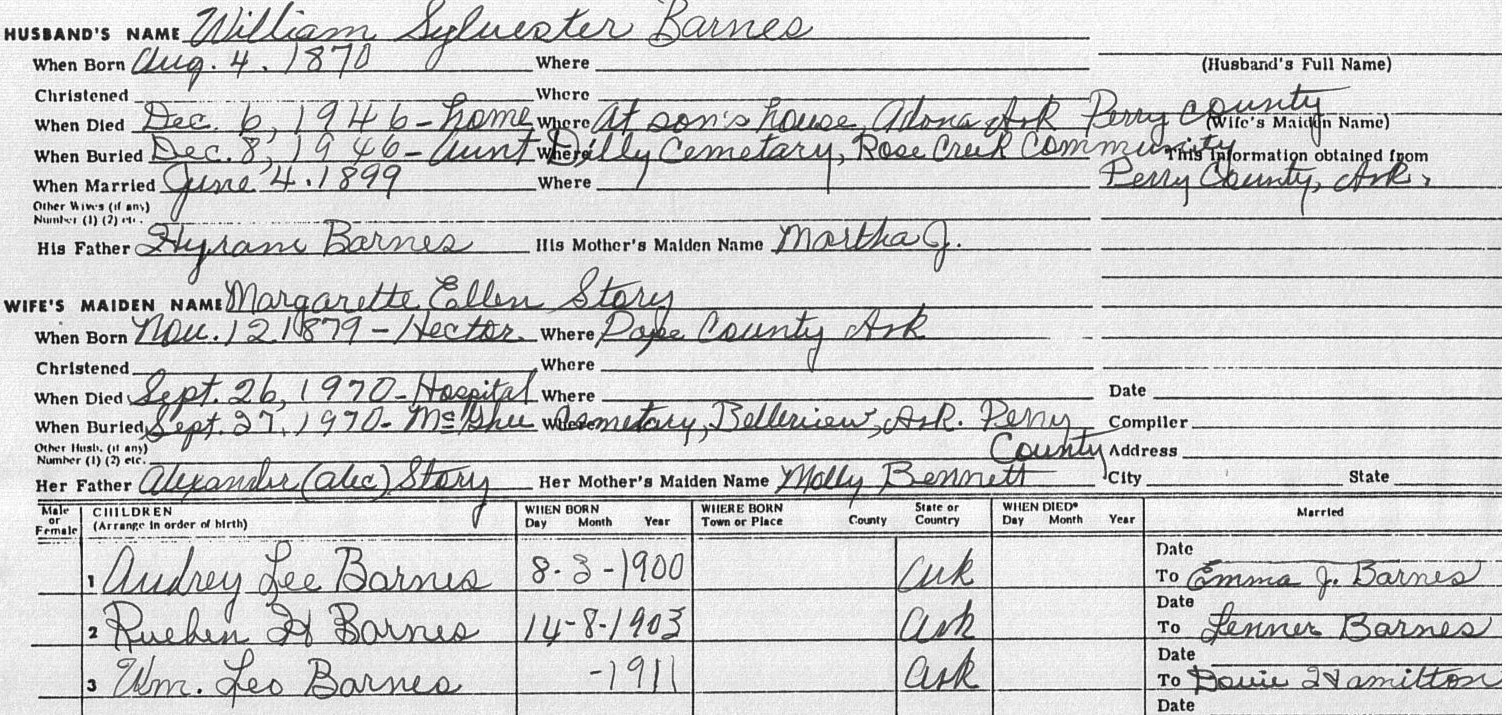 HUSBAND'S NAME William Sylvester Barnes
When Born Aug. 4. 1870 Where
(Husband's Full Name)
Christened Where
When Died Dec. 6, 1946 - home Where At son's house, Adona Ark Perry County
(Wife's Maiden Name)
When Buried Dec. 8, 1946 - Aunt Dilly Where Cemetary, Rose Creek Community
This Information obtained from
When Married June 4. 1899 Where Perry County, Ark.
Other Wives (if any)
Number (1) (2) etc.
His Father Hyram Barnes His Mother's Maiden Name Martha J.
WIFE'S MAIDEN NAME Margarette Ellen Story
When Born Nov. 12 1879 - Hector. Where Pope County Ark
Christened Where
When Died Sept. 26, 1970 - Hospital Where Date
When Buried Sept. 27, 1970 - McGhee Where Cemetary, Belleview, Ark. Perry Compiler
Other Husb. (if any)
Number (1) (2) etc. County Address
Her Father Alexander (alec) Story Her Mother's Maiden Name Molly Bennett City State
Male or Female CHILDREN (Arrange in order of birth) WHEN BORN Day Month Year WHERE BORN Town or Place County State or Country WHEN DIED* Day Month Year Married
Date
1 Audrey Lee Barnes 8-3-1900 Ark To Emma J. Barnes
Date
2 Rueben H Barnes 14-8-1903 Ark To Lenner Barnes
Date
3 Wm. Leo Barnes -1911 Ark To Hamilton
Date